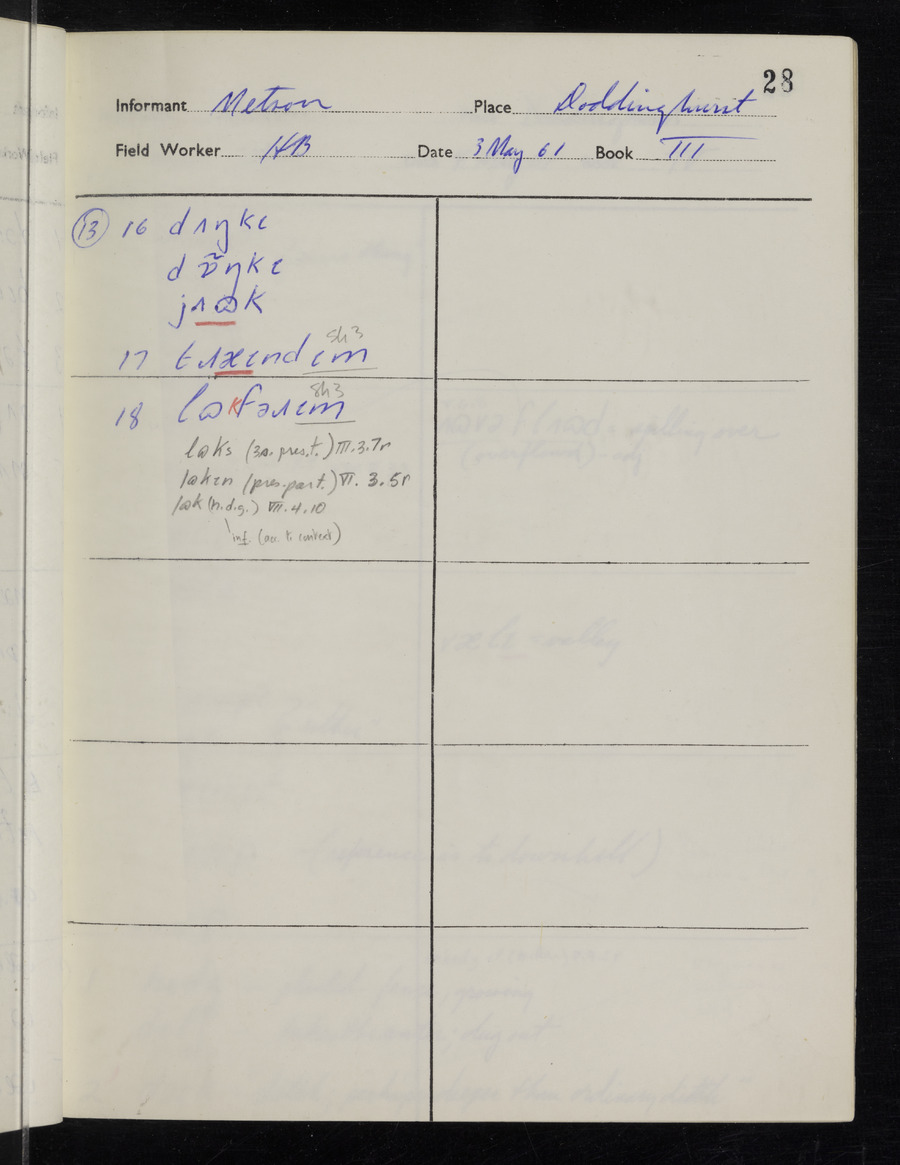 28
Informant Metson Place Doddinghurst
Field Worker HB Date 3 May 61 Book III
13 16 dʌŋkɩ
dɒ̃ŋkɩ
jʌɷk
sh3
17 tɹæɩndɩm
sh3
18 lɷkfəɹɩm
lɷks (3s. pres.t.) III.3.7r
lɷkɩn (pres.part.) VI. 3.5r
lɷk (n.d.g.) VII.4.10
inf. (acc. to context)